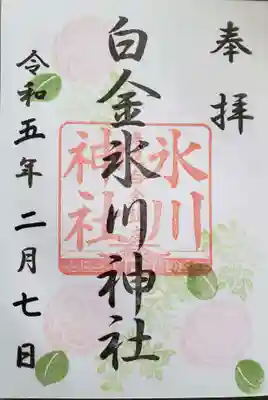 奉拝
白金氷川神社
氷川
神社
令和五年二月七日